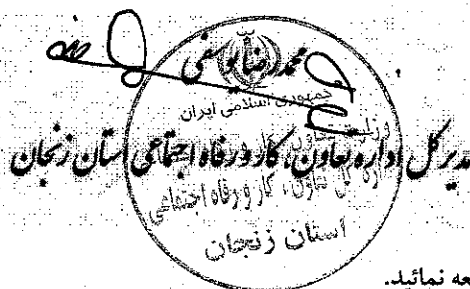 محمدرضا یوسفی
جمهوری اسلامی ایران
وزارت تعاون، کار و رفاه اجتماعی
مدیرکل اداره تعاون، کار و رفاه اجتماعی استان زنجان
اداره کل تعاون، کار و رفاه اجتماعی
استان زنجان
عه نمائید.